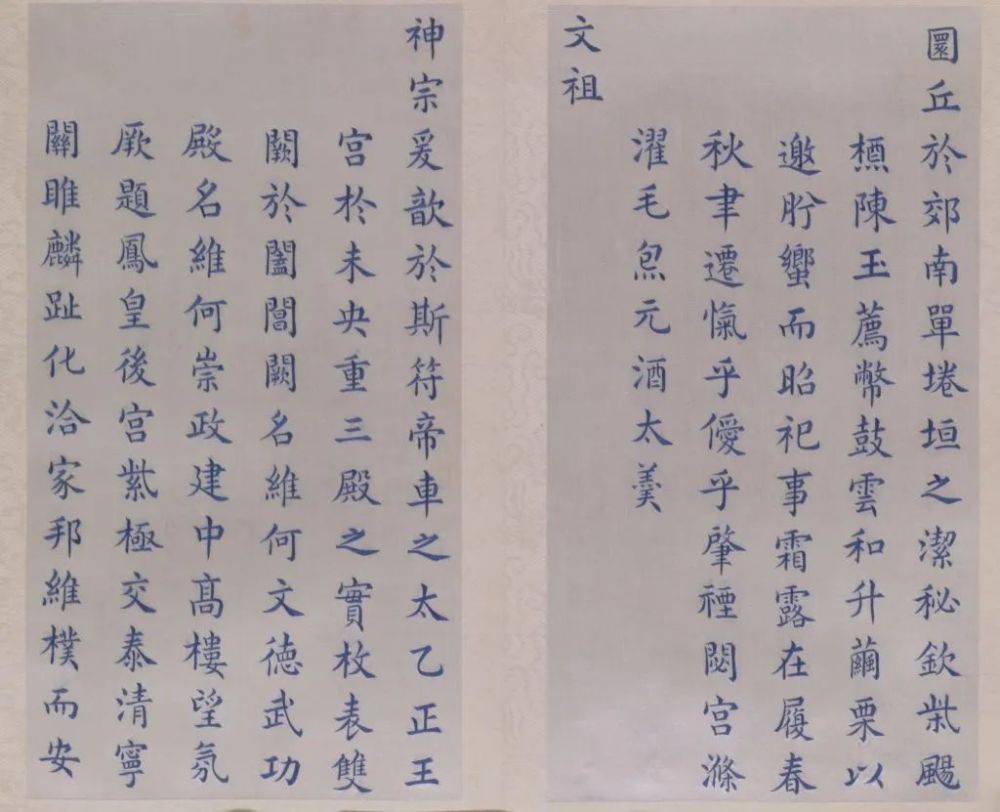 圜丘於郊南單埢垣之潔秘欽柴颺
槱陳玉薦幣鼓雲和升繭栗以
邀肸蠁而昭祀事霜露在履春
秋聿遷愾乎僾乎肇禋閟宮滌
濯毛炰元酒太羹
文祖
神宗爰歆於斯符帝車之太乙正王
宮於未央重三殿之實枚表雙
闕於闔閶闕名維何文德武功
殿名維何崇政建中高樓望氛
厥題鳳皇後宮紫極交泰清寧
關雎麟趾化洽家邦維樸而安